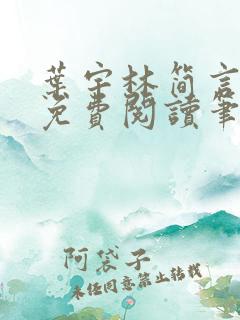 葉宇林简言
免費閱讀筆
阿袋子
未经同意禁止转载